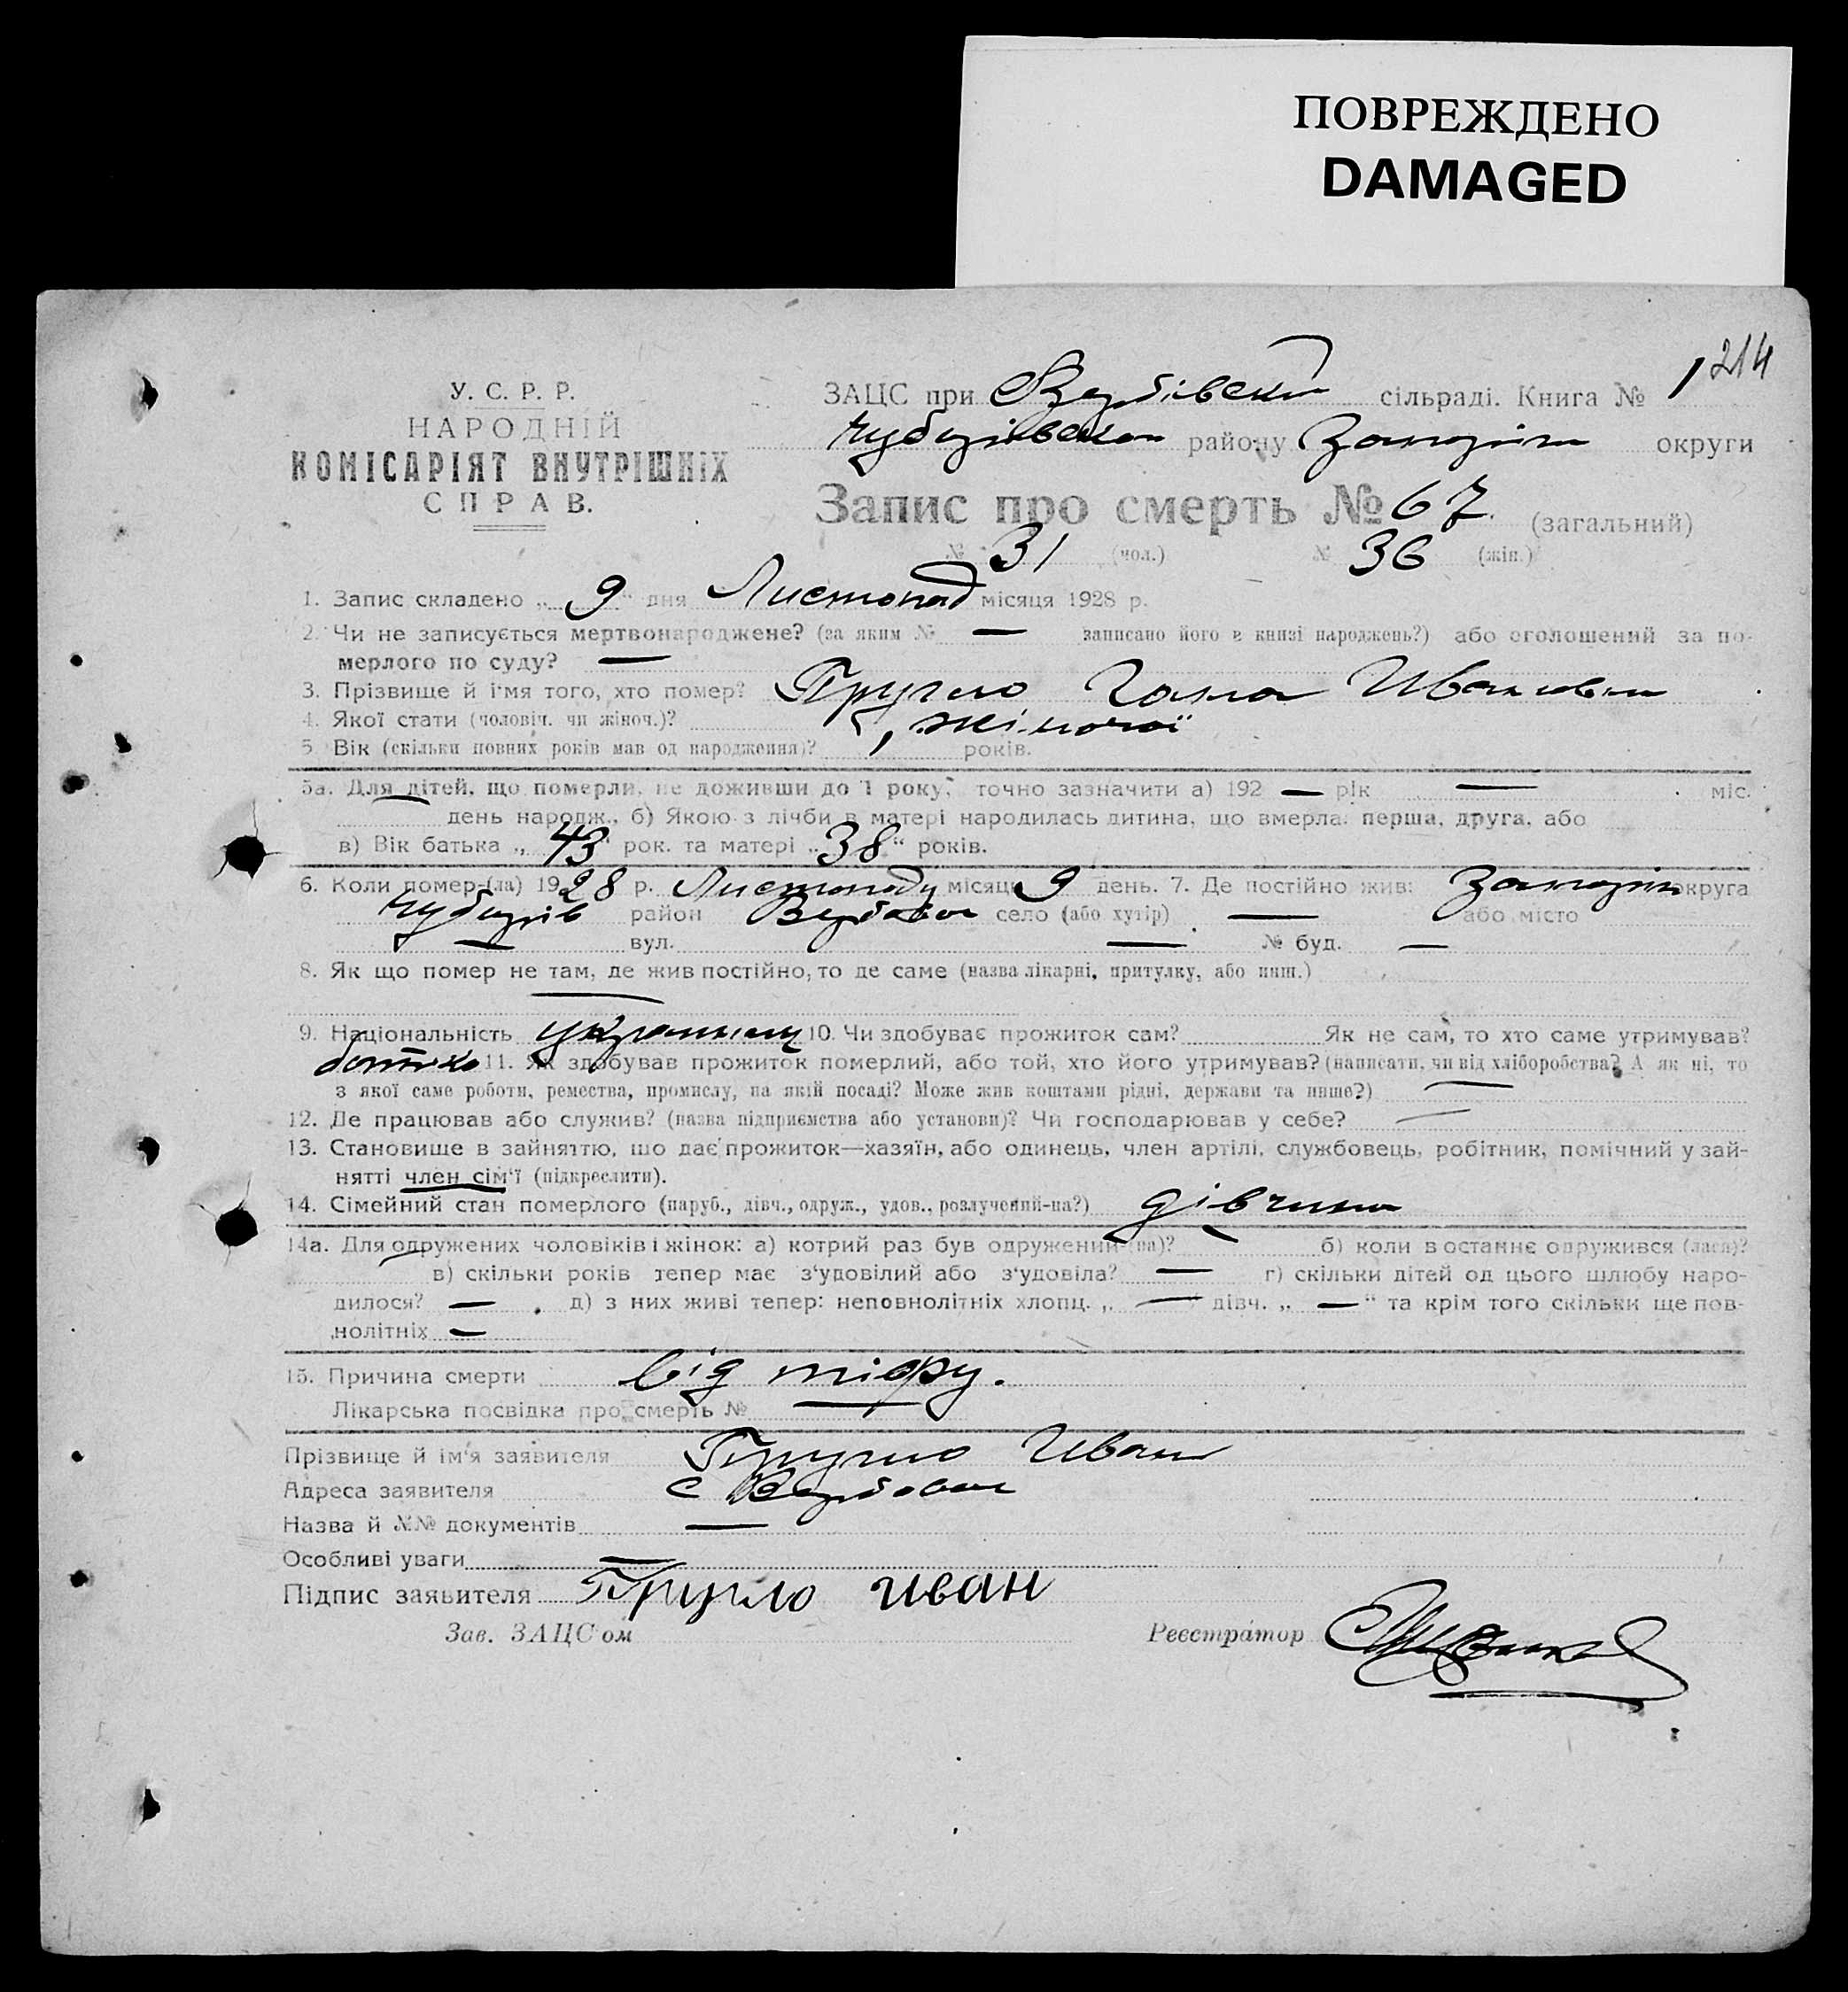 ПОВРЕЖДЕНО
DAMAGED
214
У. С. Р. Р.
НАРОДНІЙ
КОМІСАРІЯТ ВНУТРІШНІХ
СПРАВ.
ЗАЦС при Вербівскій сільраді. Книга № 1
района Запоріж округи
Запис про смерть № 67. (загальний)
№ 31 (чол.) № 36 (жін.)
1. Запис складено „ 9 " дня Листопад місяця 1928 р.
2. Чи не записується мертвонароджене? (за яким № — записано його в книзі народжень?) або оголошений за по-
мерлого по суду? —
3. Прізвище й ім'я того, хто помер? Ганна Ивановна
4. Якої стати (чоловіч. чи жіноч.)? жіночої
5. Вік (скільки повних років мав од народження)? років.
5а. Для дітей, що померли, не доживши до 1 року, точно зазначити а) 192 — рік — міс.
день народж., б) Якою з лічби в матері народилась дитина, що вмерла: перша, друга, або
в) Вік батька „ 43 " рок. та матері „ 38 " років.
6. Коли помер-(ла) 1928 р. Листопаду місяця 9 день. 7. Де постійно жив: Запоріж округа
район Вербова село (або хутір) — або місто
— вул. — № буд. —
8. Як що помер не там, де жив постійно, то де саме (назва лікарні, притулку, або инш.)
—
9. Національність 10. Чи здобуває прожиток сам? Як не сам, то хто саме утримував?
батько 11. Як здобував прожиток померлий, або той, хто його утримував? (написати, чи від хліборобства? А як ні, то
з якої саме роботи, ремества, промислу, на якій посаді? Може жив коштами рідні, держави та инше?) —
12. Де працював або служив? (назва підприємства або установи)? Чи господарював у себе? —
13. Становище в зайняттю, що дає прожиток—хазяїн, або одинець, член артілі, службовець, робітник, помічний у зай-
нятті член сім'ї (підкреслити).
14. Сімейний стан померлого (паруб., дівч., одруж., удов., розлучений-на?) дівчина
14а. Для одружених чоловіків і жінок: а) котрий раз був одружений-(на)? б) коли востаннє одружився (лася)?
в) скільки років тепер має з'удовілий або з'удовіла? — г) скільки дітей од цього шлюбу наро-
дилося? — д) з них живі тепер: неповнолітніх хлопц. „ — дівч. „ — " та крім того скільки ще пов-
нолітніх —
15. Причина смерти від тіфу.
Лікарська посвідка про смерть № —
Прізвище й ім'я заявителя Иван
Адреса заявителя с Вербова
Назва й №№ документів —
Особливі уваги —
Підпис заявителя Иван
Зав. ЗАЦС'ом Реєстратор